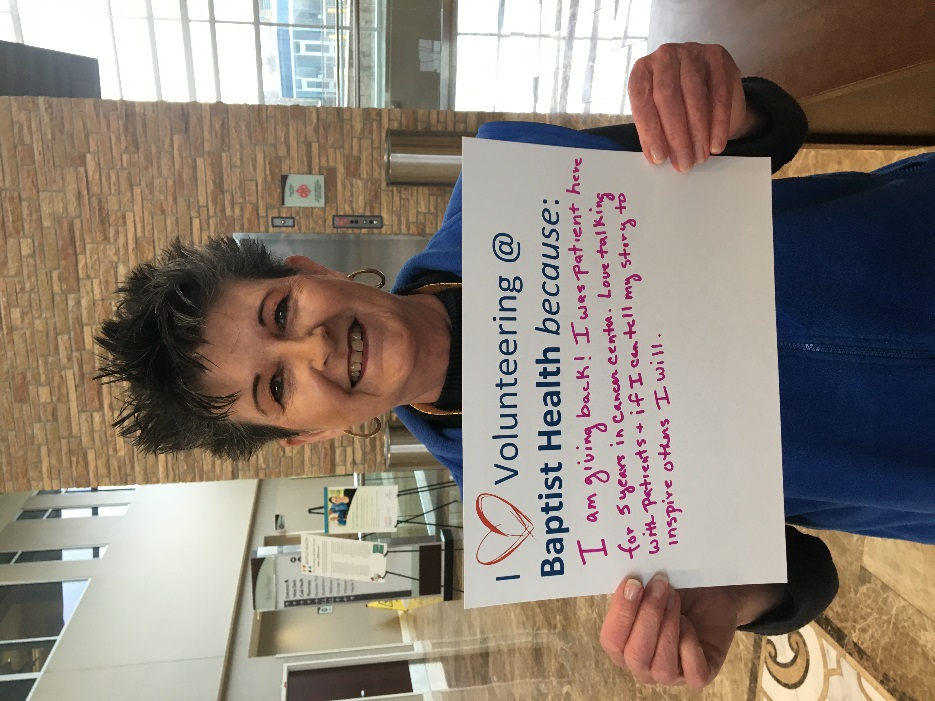 I Volunteering @
Baptist Health because:
I am giving back! I was patient here
for 5 years in Cancer Center. Love talking
with patients + if I can tell my story to
inspire others I will.